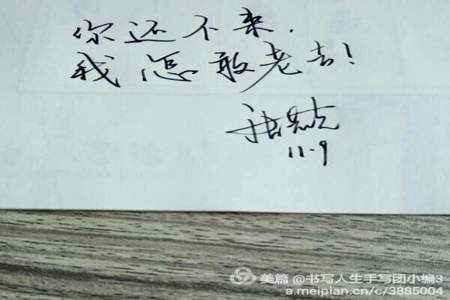 你还不来.
我怎敢老去!
11.9
美篇 @书写人生手写团小编3
a.meipian.cn/c/3885004